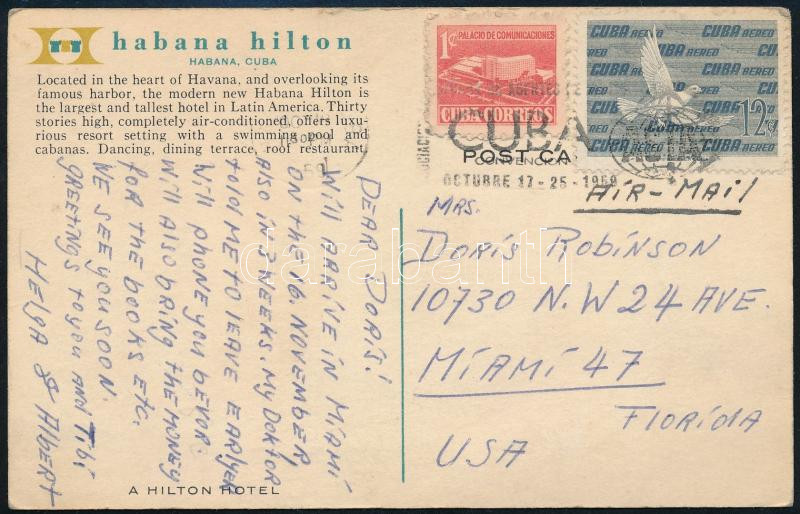 habana hilton
HABANA, CUBA
Located in the heart of Havana, and overlooking its
famous harbor, the modern new Habana Hilton is
the largest and tallest hotel in Latin America. Thirty
stories high, completely air-conditioned, offers luxu-
rious resort setting with a swimming pool and
cabanas. Dancing, dining terrace, roof restaurant.
DEAR DORIS!
Will ARRIVE IN MIAMI
ON THE 16. NOVEMBER
Also in 3 WEEKS. My DOKTOR
told ME TO LEAVE EARlyER
Will phone you bevor.
Will Also bring the MONEY
for the books etc.
WE SEE you SOON.
GREETINGS to you AND Tibi
HELGA & AlbERT
A HILTON HOTEL
1¢ PALACIO DE COMUNICACIONES
CUBA CORREOS
CUBA AEREO CUBA AEREO
12¢
CUBA
POST CA
CONVENCION
OCTUBRE 17 - 25 - 1959
AIR-MAIL
MRS.
DORIS ROBINSON
10730 N.W 24 AVE.
MIAMI 47
FLORIDA
USA
darabanth